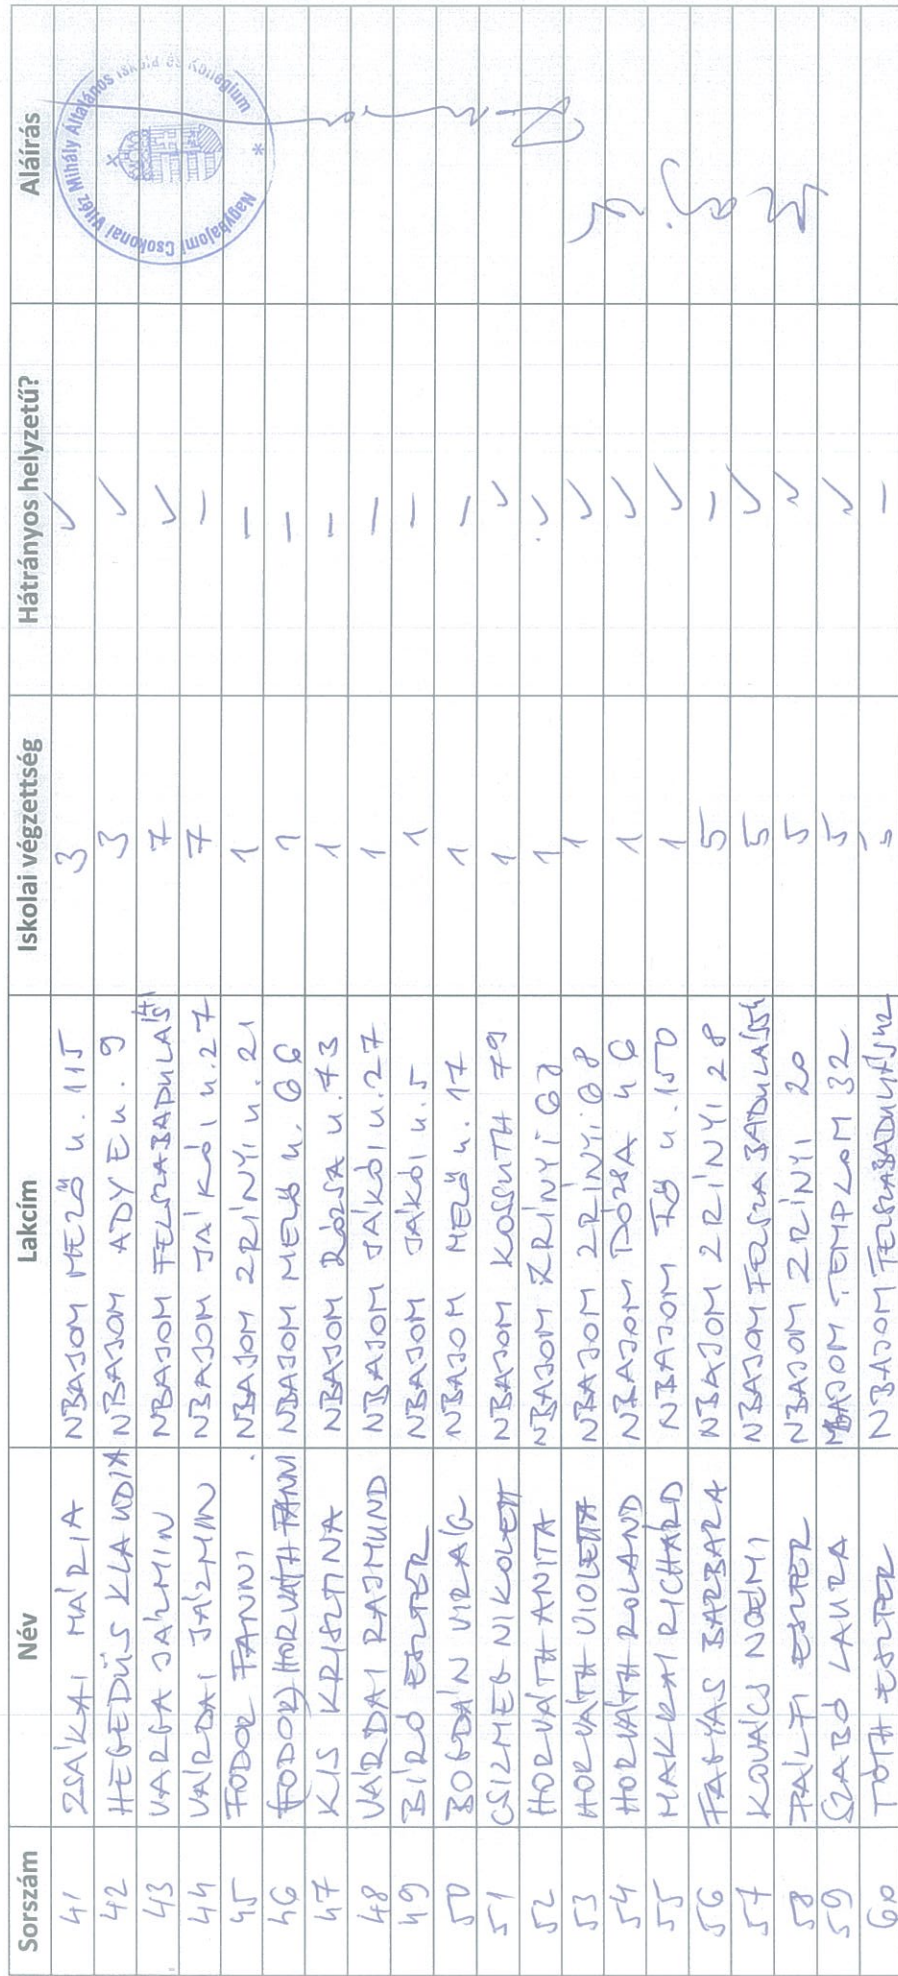 Sorszám Név Lakcím Iskolai végzettség Hátrányos helyzetű? Aláírás
41 ZSÁKAI MÁRIA NBAJOM MEZŐ u. 115 3 ✓
42 HEGEDŰS KLAUDIA NBAJOM ADY E u. 9 3 ✓
43 VARGA JÁZMIN NBAJOM FELSZABADULÁS 7 ✓
44 VÁRDAI JÁZMIN NBAJOM JÁKÓI u. 27 7 –
45 FODOR FANNI NBAJOM ZRÍNYI u. 21 1 –
46 FODOR) HORVÁTH FANNI NBAJOM MEZŐ u. 66 1 –
47 KIS KRISZTINA NBAJOM RÓZSA u. 73 1 –
48 VÁRDAI RAJMUND NBAJOM JÁKÓI u. 27 1 –
49 BÍRÓ ESZTER NBAJOM JÁKÓI u. 5 1 –
50 BOGDÁN VIRÁG NBAJOM MEZŐ u. 17 1 –
51 CSIZMEG NIKOLETT NBAJOM KOSSUTH 79 1 ✓
52 HORVÁTH ANITA NBAJOM ZRÍNYI 68 1 ✓
53 HORVÁTH VIOLETTA NBAJOM ZRÍNYI 68 1 ✓
54 HORVÁTH ROLAND NBAJOM DÓZSA u 6 1 ✓
55 MAKRAI RICHÁRD NBAJOM FŐ u. 150 1 ✓
56 FAGYAS BARBARA NBAJOM ZRÍNYI 28 5 –
57 KOVÁCS NOÉMI NBAJOM FELSZABADULÁS 5 ✓
58 PÁLFI ESZTER NBAJOM ZRÍNYI 20 5 ✓
59 SZABÓ LAURA NBAJOM TEMPLOM 32 5 ✓
60 TÓTH ESZTER NBAJOM FELSZABADULÁS 5 –
Nagybajomi Csokonai Vitéz Mihály Általános Iskola és Kollégium